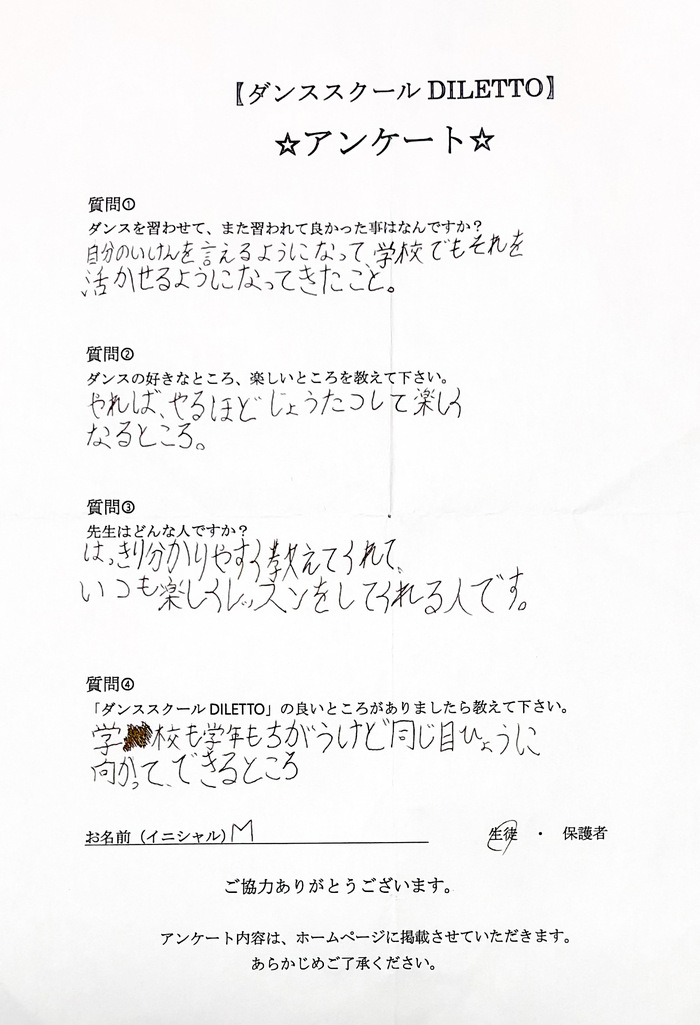 〖ダンススクール DILETTO〗
☆アンケート☆
質問①
ダンスを習わせて、また習われて良かった事はなんですか？
自分のいけんを言えるようになって、学校でもそれを
活かせるようになってきたこと。
質問②
ダンスの好きなところ、楽しいところを教えて下さい。
やれば、やるほどじょうたつして楽しく
なるところ。
質問③
先生はどんな人ですか？
はっきり分かりやすく教えてくれて、
いつも楽しくレッスンをしてくれる人です。
質問④
「ダンススクール DILETTO」の良いところがありましたら教えて下さい。
学校も学年もちがうけど同じ目ひょうに
向かって、できるところ
お名前（イニシャル）M 生徒 ・ 保護者
ご協力ありがとうございます。
アンケート内容は、ホームページに掲載させていただきます。
あらかじめご了承ください。